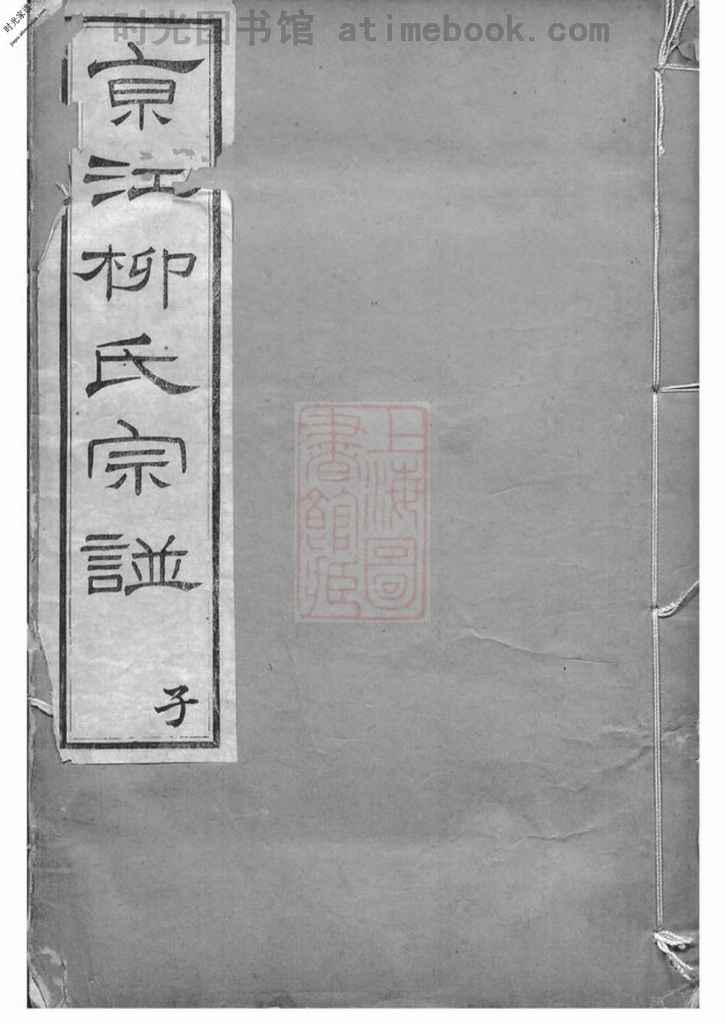 时光图书馆 atimebook.com
京江柳氏宗譜
子
上海图
書館藏